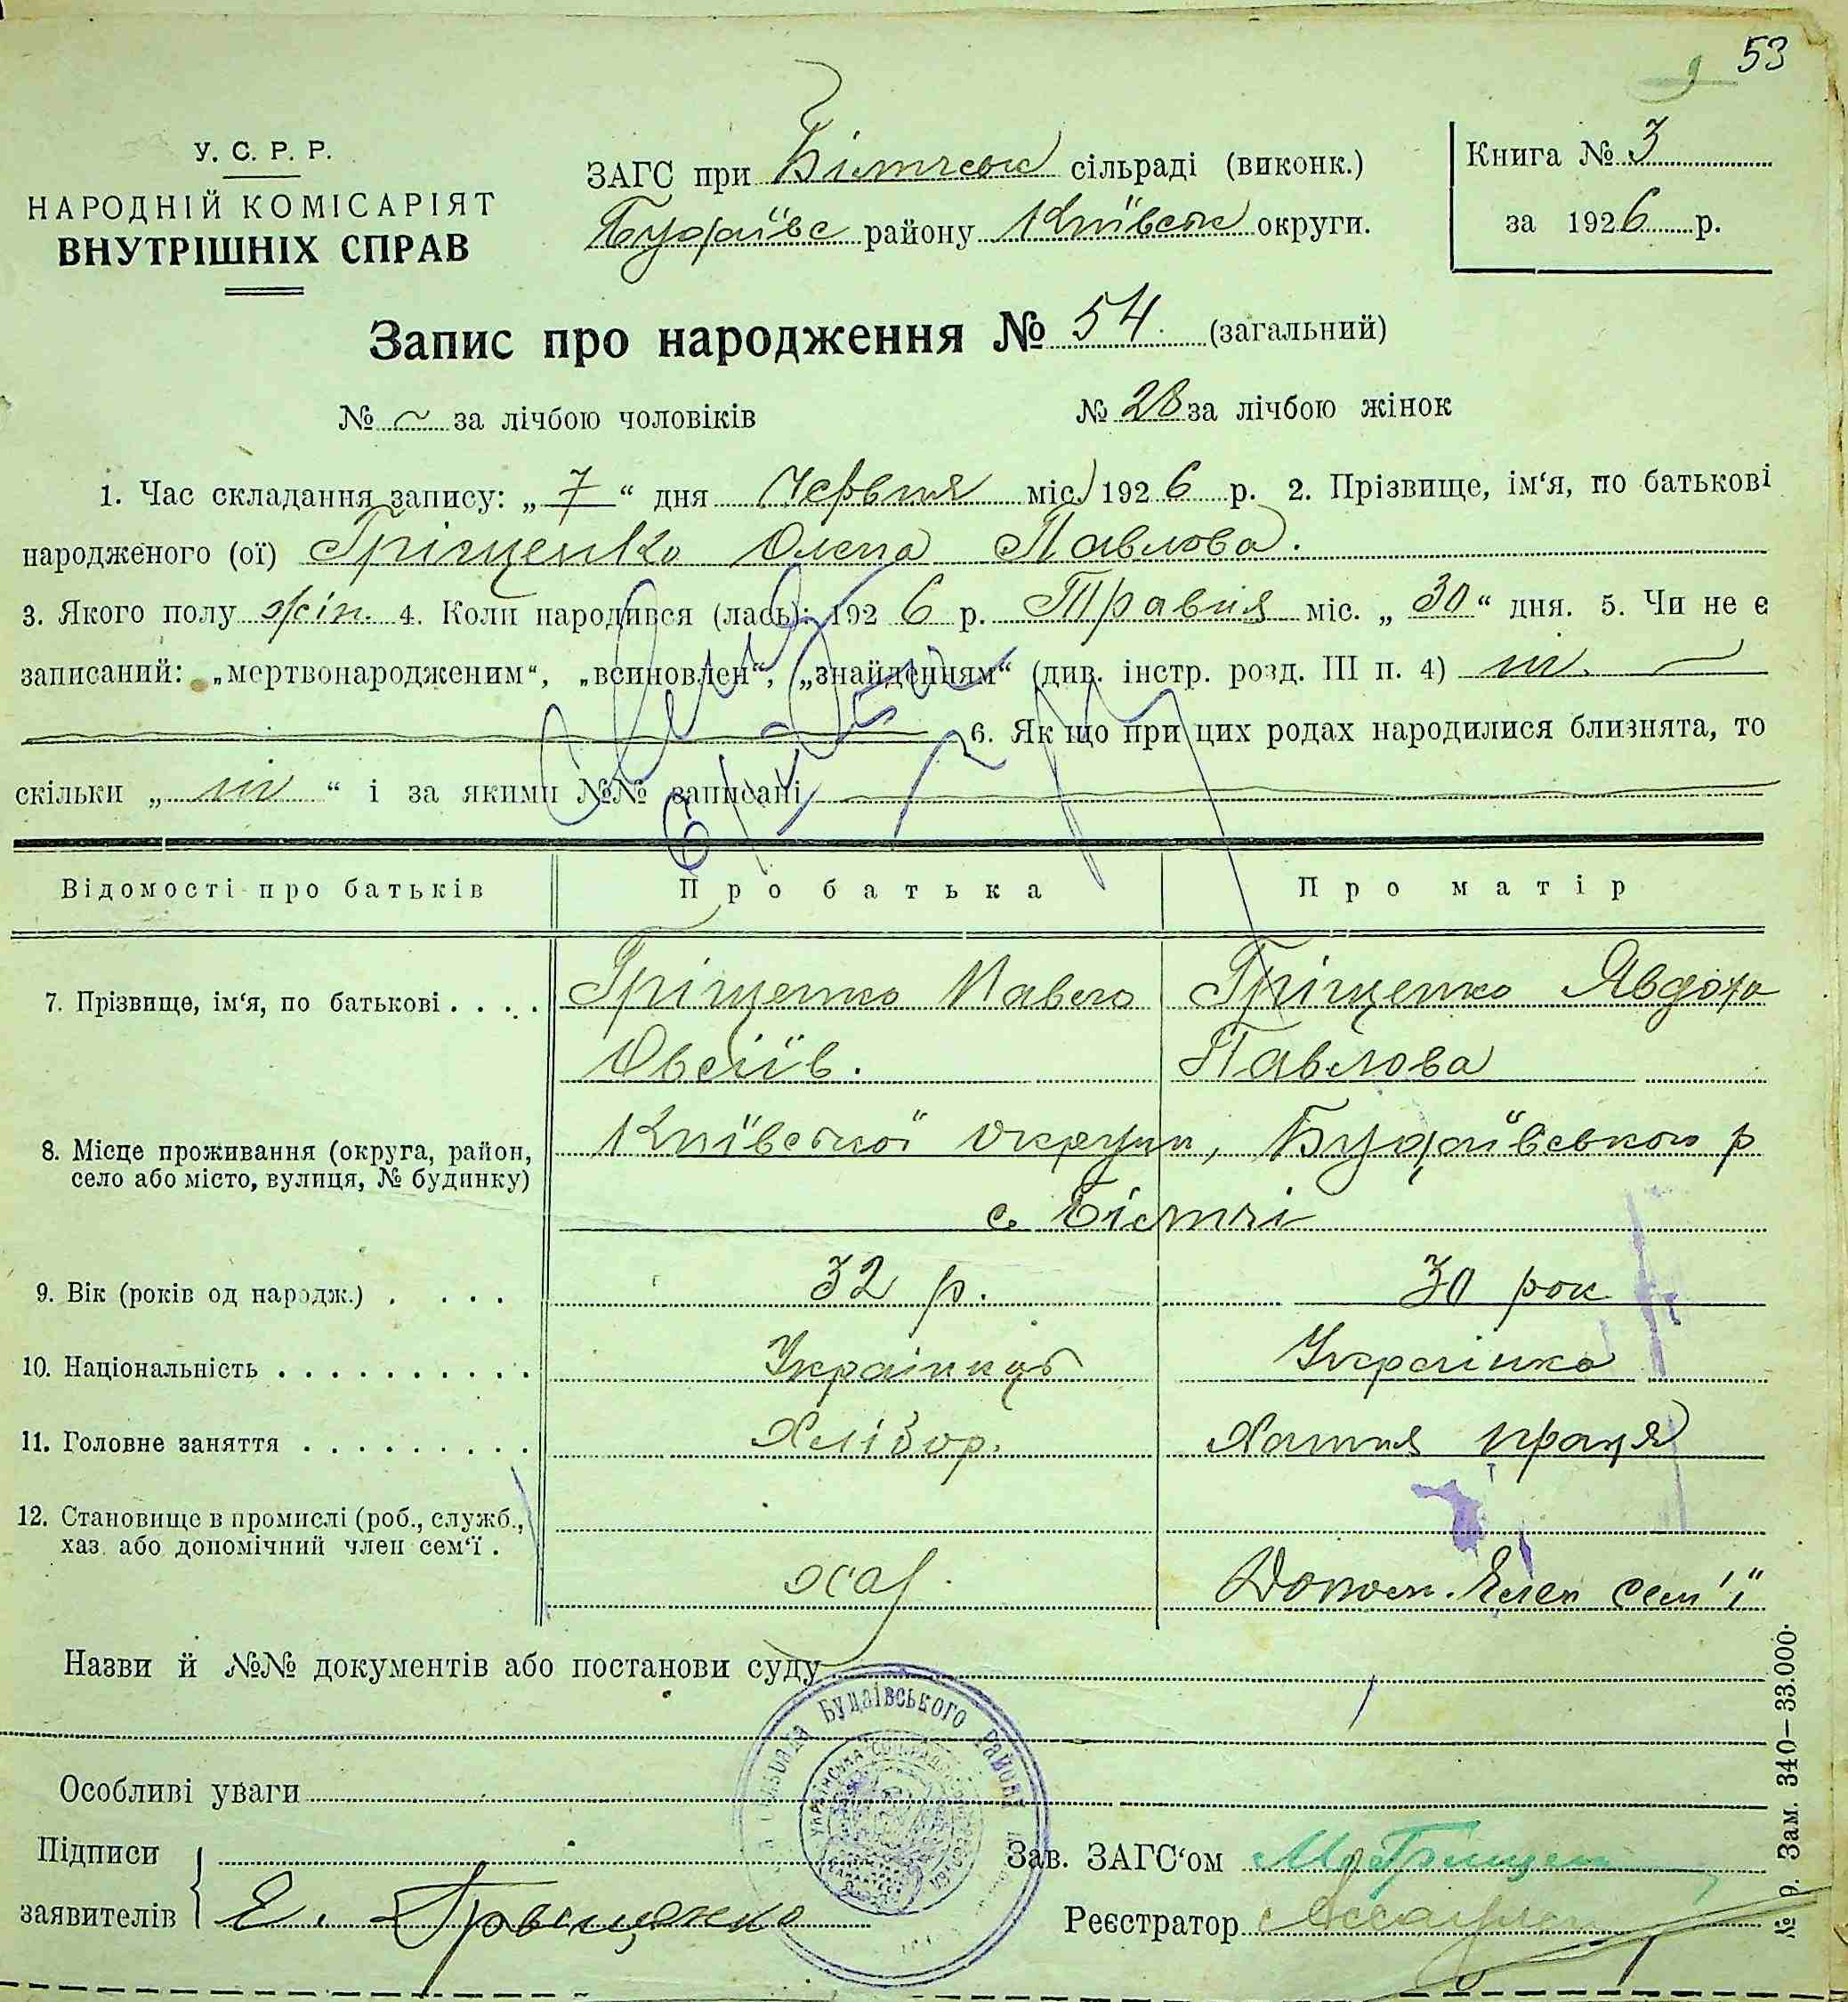 53
У. С. Р. Р.
НАРОДНІЙ КОМІСАРІЯТ
ВНУТРІШНІХ СПРАВ
ЗАГС при сільраді (виконк.)
Будаївс району Київськ округи.
Книга № 3
за 1926 р.
Запис про народження № 54. (загальний)
№ ~ за лічбою чоловіків № 28 за лічбою жінок
1. Час складання запису: „ 7 “ дня Червня міс. 1926 р. 2. Прізвище, ім‘я, по батькові
народженого (ої) Гріщенко Олена Павлова.
3. Якого полу жін. 4. Коли народився (лась): 1926 р. Травня міс. „ 30 “ дня. 5. Чи не є
записаний: „мертвонародженим“, „всиновлен“, „знайденням“ (див. інстр. розд. III п. 4) ні.
6. Як що при цих родах народилися близнята, то
скільки „ ні “ і за якими №№ записані
Відомості про батьків Про батька Про матір
7. Прізвище, ім‘я, по батькові . . . . Гріщенко Павло Гріщенко Явдоха
Овсіїв. Павлова
8. Місце проживання (округа, район, село або місто, вулиця, № будинку) Київської округи, Будаївського р
с. Бітчі
9. Вік (років од народж.) . . . . 32 р. 30 рок
10. Національність . . . . . . . . . . . Українець Українка
11. Головне заняття . . . . . . . . . . Хлібор. Хатня праця
12. Становище в промислі (роб., служб.,
хаз. або допомічний член сем‘ї . хаз. Допом. член сем'ї
Назви й №№ документів або постанови суду
Будаївського Району
Особливі уваги
Підписи
заявителів Е.
Зав. ЗАГС‘ом
Реєстратор
№ 9. Зам. 340—33.000.